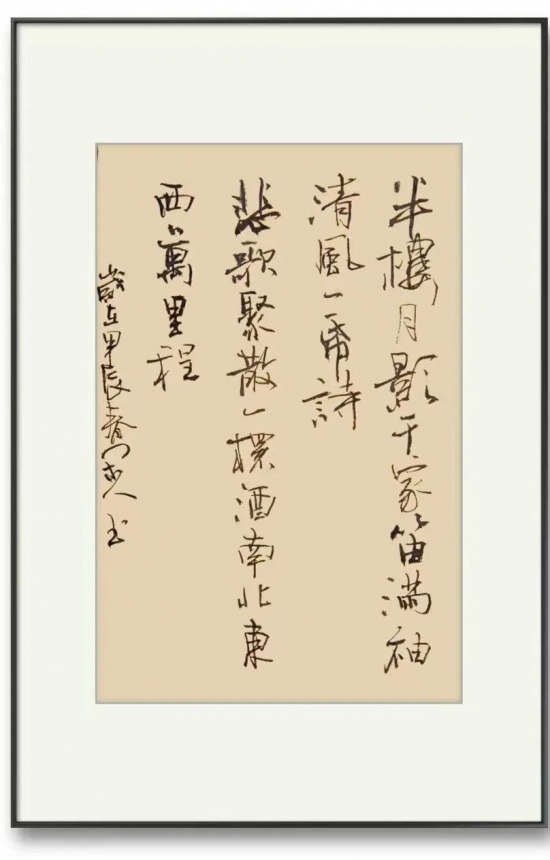 半樓月影千家笛滿袖
清風一帋詩
悲歌聚散一樽酒南北東
西萬里程
歲在甲辰春人书